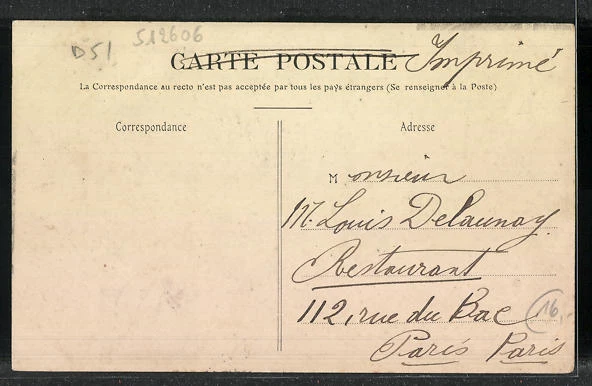 D51 512606
CARTE POSTALE Imprimé
La Correspondance au recto n'est pas acceptée par tous les pays étrangers (Se renseigner à la Poste)
Correspondance
Adresse
Monsieur
M. Louis Delaunay
Restaurant
112, rue du Bac
16,-
Paris Paris